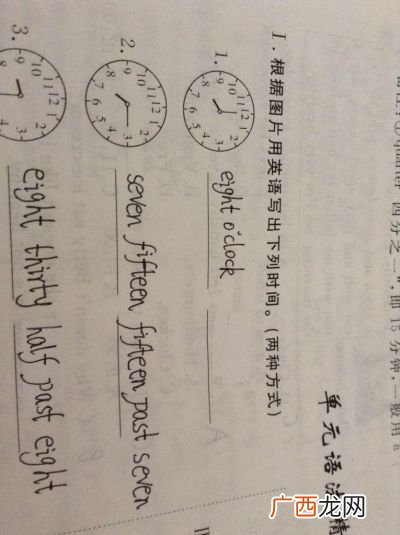 ”,即15分钟,一般用a
单元语法精
Ⅰ.根据图片用英语写出下列时间。(两种方式)
1. eight o'clock
2. seven fifteen fifteen past seven
3. eight thirty half past eight
广西龙网